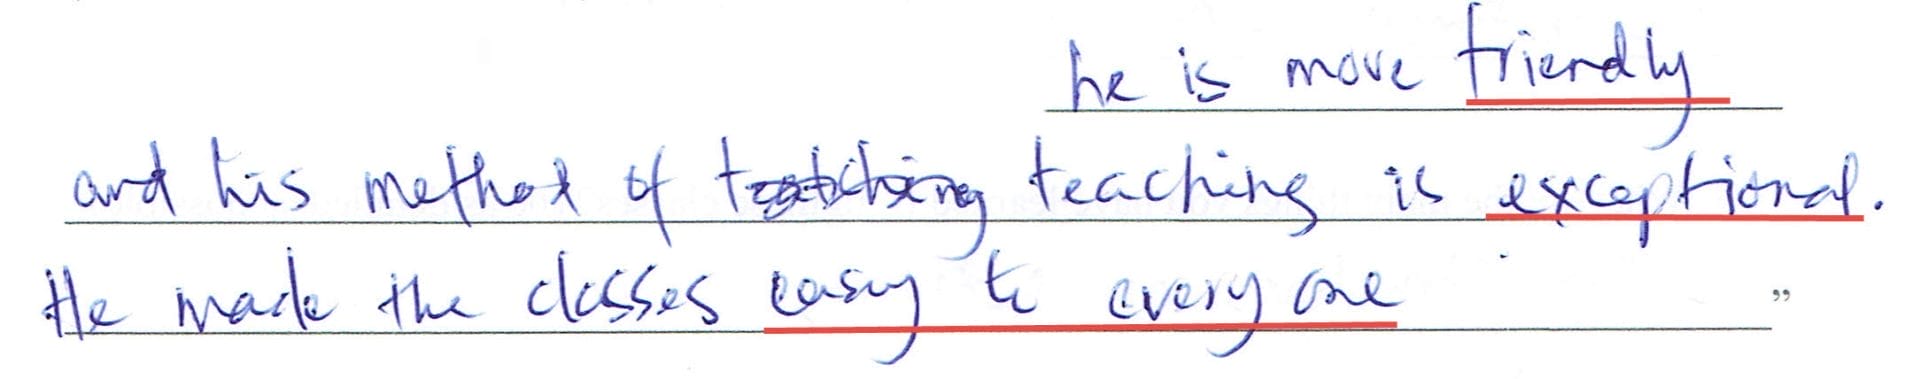 he is more friendly
and his method of teaching is exceptional.
He made the classes easy to every one ”